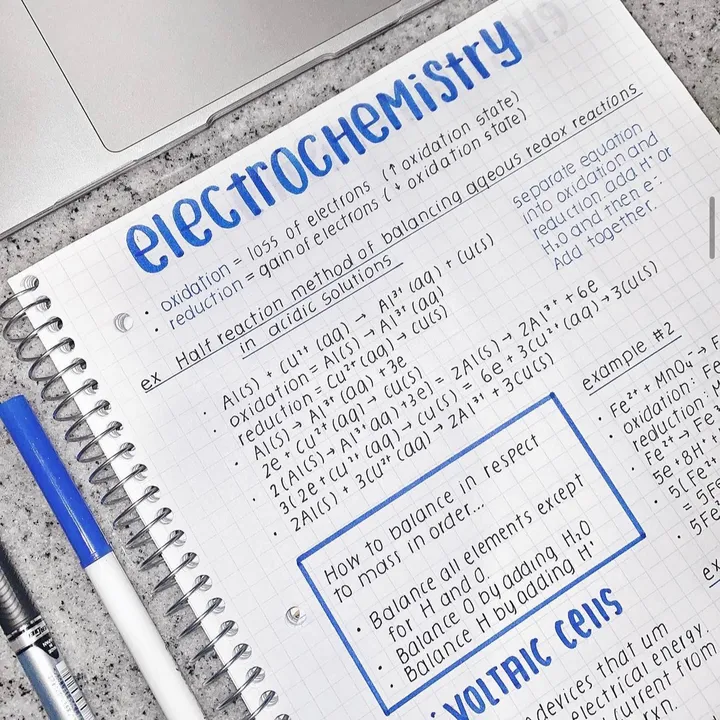 electrochemistry
· oxidation = loss of electrons (↑ oxidation state)
· reduction = gain of electrons (↓ oxidation state)
ex Half reaction method of balancing aqeous redox reactions
in acidic solutions
separate equation
into oxidation and
reduction, add H⁺ or
H₂O and then e⁻.
Add together.
· Al(s) + Cu²⁺(aq) → Al³⁺(aq) + Cu(s)
oxidation = Al(s) → Al³⁺(aq)
reduction = Cu²⁺(aq) → Cu(s)
· Al(s) → Al³⁺(aq) + 3e
2e + Cu²⁺(aq) → Cu(s)
· 2(Al(s) → Al³⁺(aq) + 3e) = 2Al(s) → 2Al³⁺ + 6e
3(2e + Cu²⁺(aq) → Cu(s) = 6e + 3Cu²⁺(aq) → 3Cu(s)
· 2Al(s) + 3Cu²⁺(aq) → 2Al³⁺ + 3Cu(s)
How to balance in respect
to mass in order...
· Balance all elements except
for H and O.
· Balance O by adding H₂O
· Balance H by adding H⁺
example #2
· Fe²⁺ + MnO₄ →
· oxidation: Fe
reduction:
· Fe²⁺ → Fe
5e + 8H⁺
· 5(Fe²⁺
= 5Fe
· 5Fe
ex
VOLTAIC Cells
devices that
electrical energy.
current from
rxn.